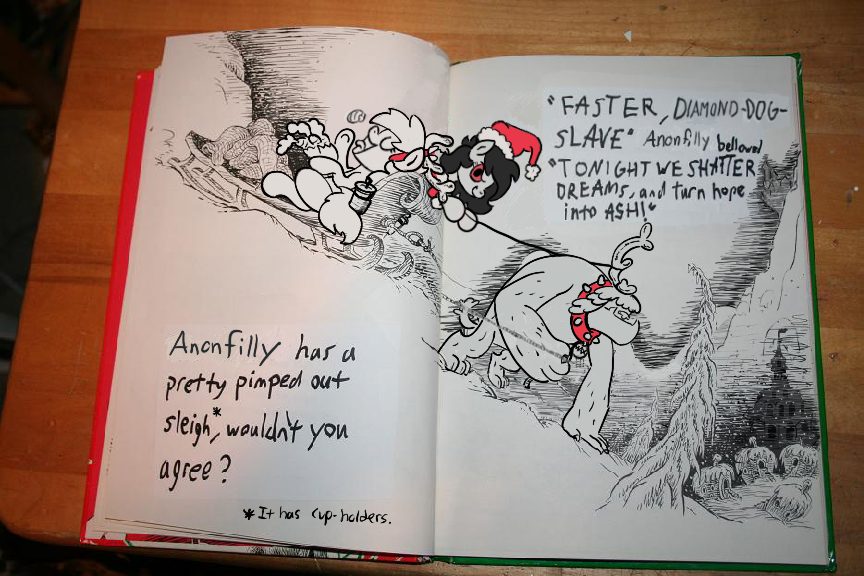 Anonfilly has a
pretty pimped out
sleigh,* wouldn't you
agree?
* It has cup-holders.
"FASTER, DIAMOND-DOG-
SLAVE" Anonfilly bellowed
"TONIGHT WE SHATTER
DREAMS, and turn hope
into ASH!"